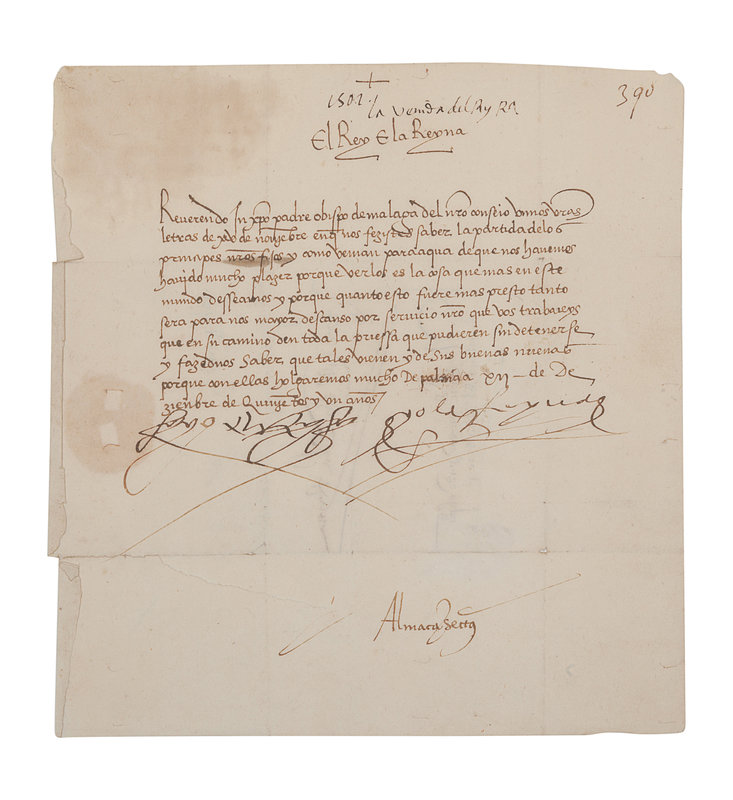 390
1501
la venida del
El Rey E la Reyna
Reverendo In xpo padre obispo de malaga del nro conseio vimos vras
letras de de noviembre en q nos fezistes saber la partida de los
principes nros fijos y como venian para aqua de que nos havemos
havido mucho plazer porque verlos es la cosa que mas en este
mundo desseamos y porque quanto esto fuere mas presto tanto
sera para nos mayor descanso por servicio nro que vos trabajeys
que en su camino den toda la priessa que pudieren sin detenerse
y fazednos saber que tales vienen y de sus buenas nuevas
porque con ellas holgaremos mucho De a XII de De
zienbre de Quinientos y un años
yo el Rey yo la Reyna
Almaçã